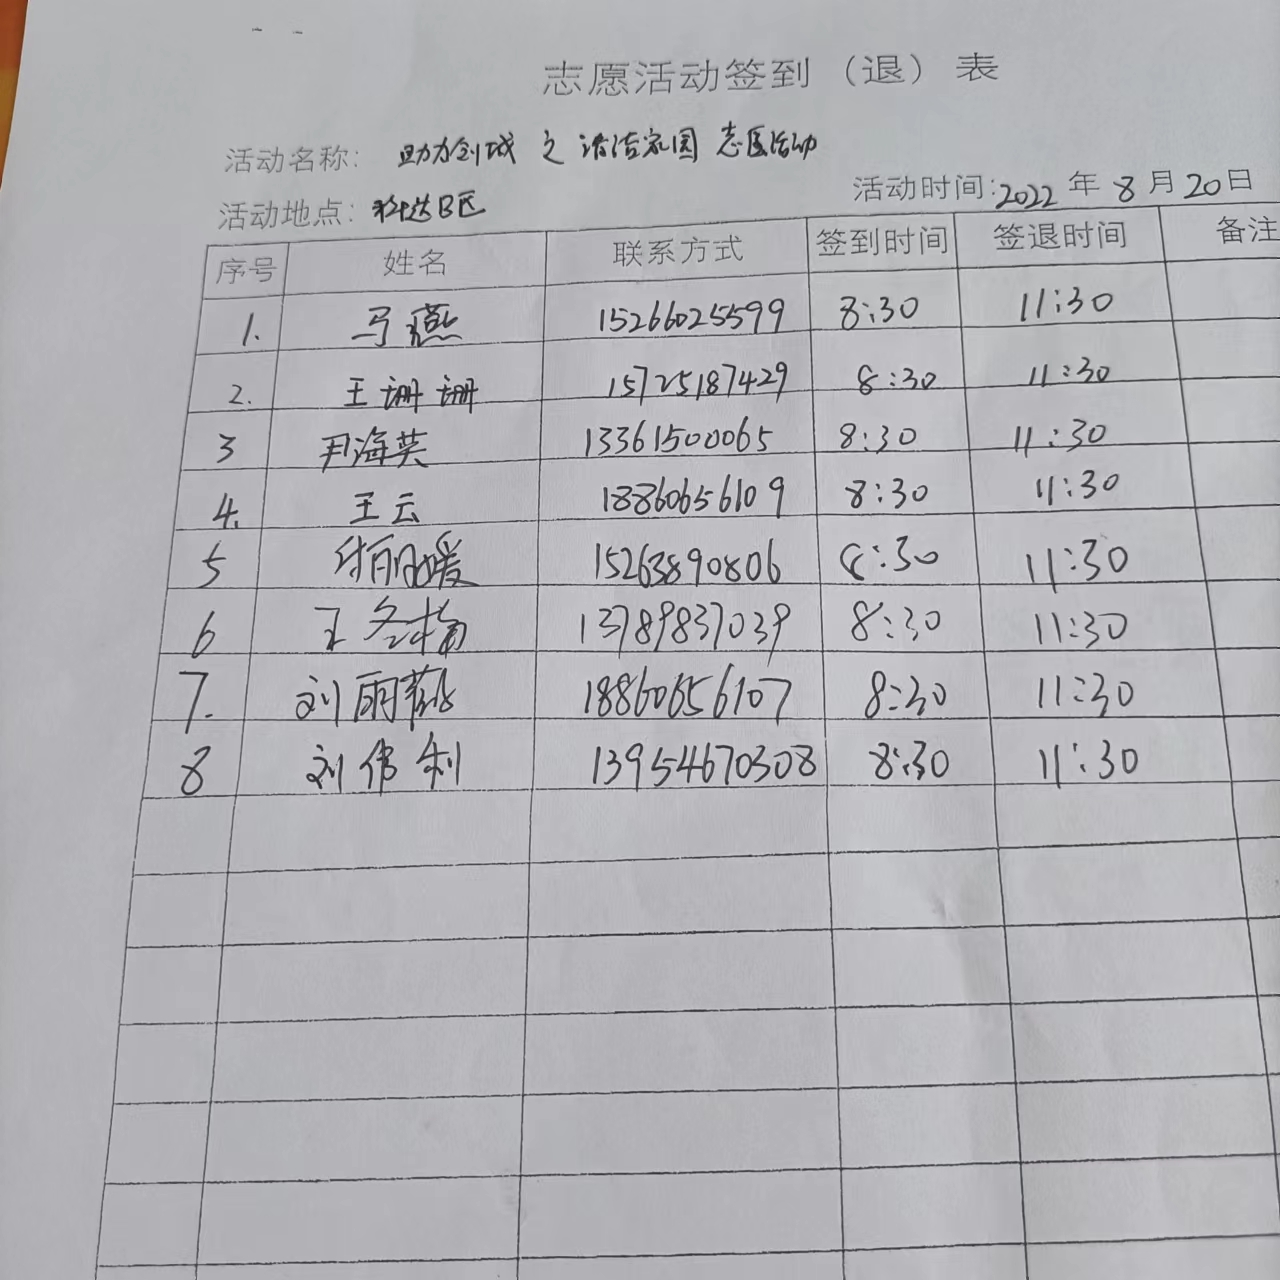 志愿活动签到（退）表
活动名称：助力创城 之 清洁家园 志愿活动
活动地点：科达B区 活动时间：2022 年 8 月 20 日
序号 姓名 联系方式 签到时间 签退时间 备注
1. 马燕 15266025599 8:30 11:30
2. 王珊珊 15725187429 8:30 11:30
3 尹海英 13361500065 8:30 11:30
4. 王云 18860656109 8:30 11:30
5 15263890806 8:30 11:30
6 王冬梅 13789837039 8:30 11:30
7. 刘雨 18860656107 8:30 11:30
8 刘伟利 13954670308 8:30 11:30